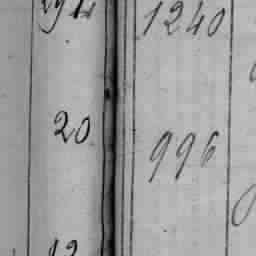 1240
20
996
12